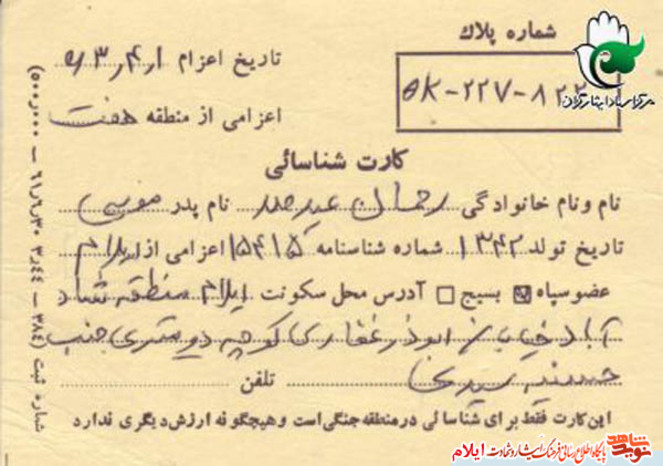 شماره پلاك
تاریخ اعزام ۶۳٫۴٫۱
مرکز اسناد ایثارگران
OK-۲۲۷-۸۲
اعزامی از منطقه هفت
کارت شناسائی
نام و نام خانوادگی رحمان نام پدر موسی
تاریخ تولد ۱۳۴۲ شماره شناسنامه ۱۵۴۱۵ اعزامی از ایلام
عضو سپاه بسیج آدرس محل سکونت ایلام منطقه شاد
آباد خیابان ابوذر غفاری کوچه دو متری جنب
حسینیه
تلفن
این کارت فقط برای شناسائی در منطقه جنگی است و هیچگونه ارزش دیگری ندارد
شماره ثبت (۳۸۴ – ۳٫۴۴ – ۶۱٫۶٫۳۰ – ۵۰۰٫۰۰۰)
نوید شاهد پایگاه اطلاع رسانی فرهنگ ایثار و شهادت ایلام